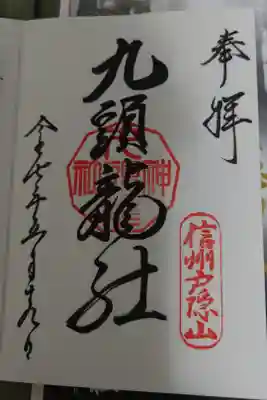 奉拝
信州戸隠山
九頭龍社
令和七年五月十九日